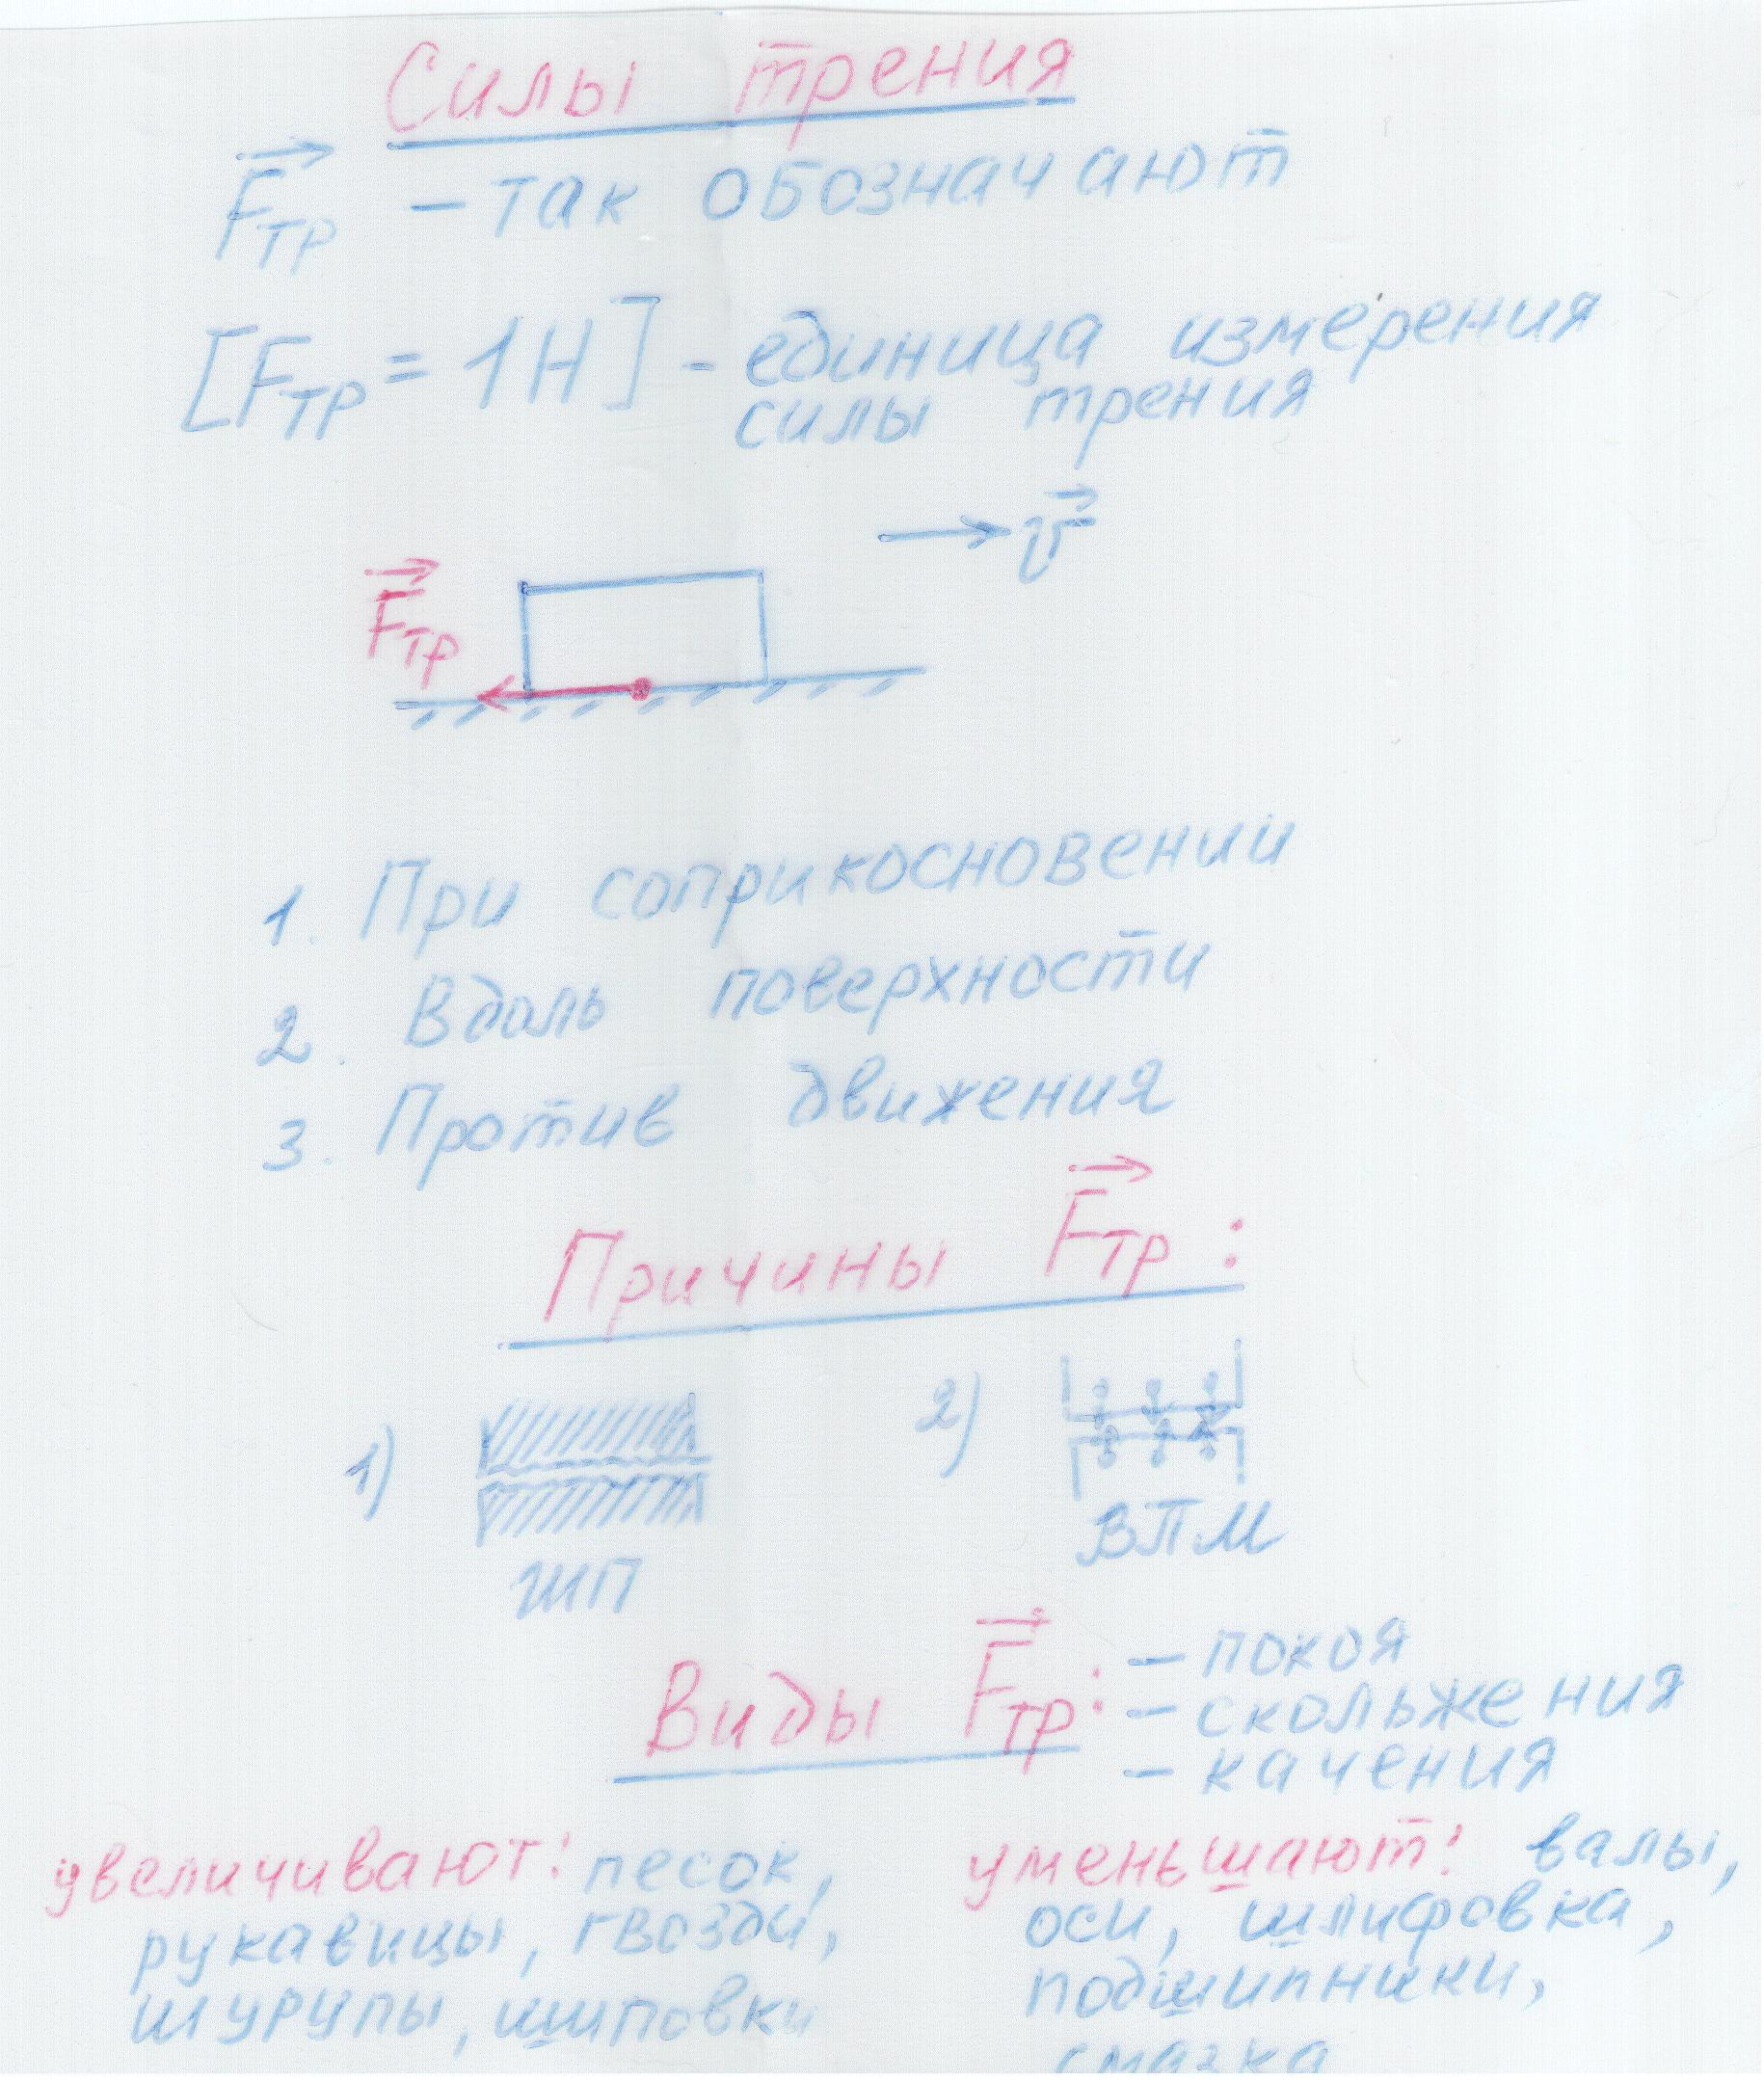 Силы трения
F⃗тр – так обозначают
[Fтр = 1Н] - единица измерения
силы трения
v⃗
F⃗тр
1. При соприкосновении
2. Вдоль поверхности
3. Против движения
Причины F⃗тр:
1) 2)
ШП ВПМ
Виды F⃗тр: – покоя
– скольжения
– качения
увеличивают: песок,
рукавицы, гвозди,
шурупы, шиповки
уменьшают: валы,
оси, шлифовка,
подшипники,
смазка